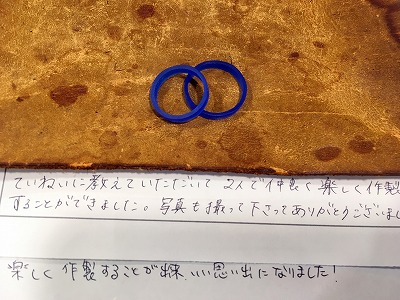 ていねいに教えていただいて 2人で仲良く楽しく作製
することができました。写真も撮って下さってありがとうございまし
楽しく作製することが出来、いい思い出になりました！